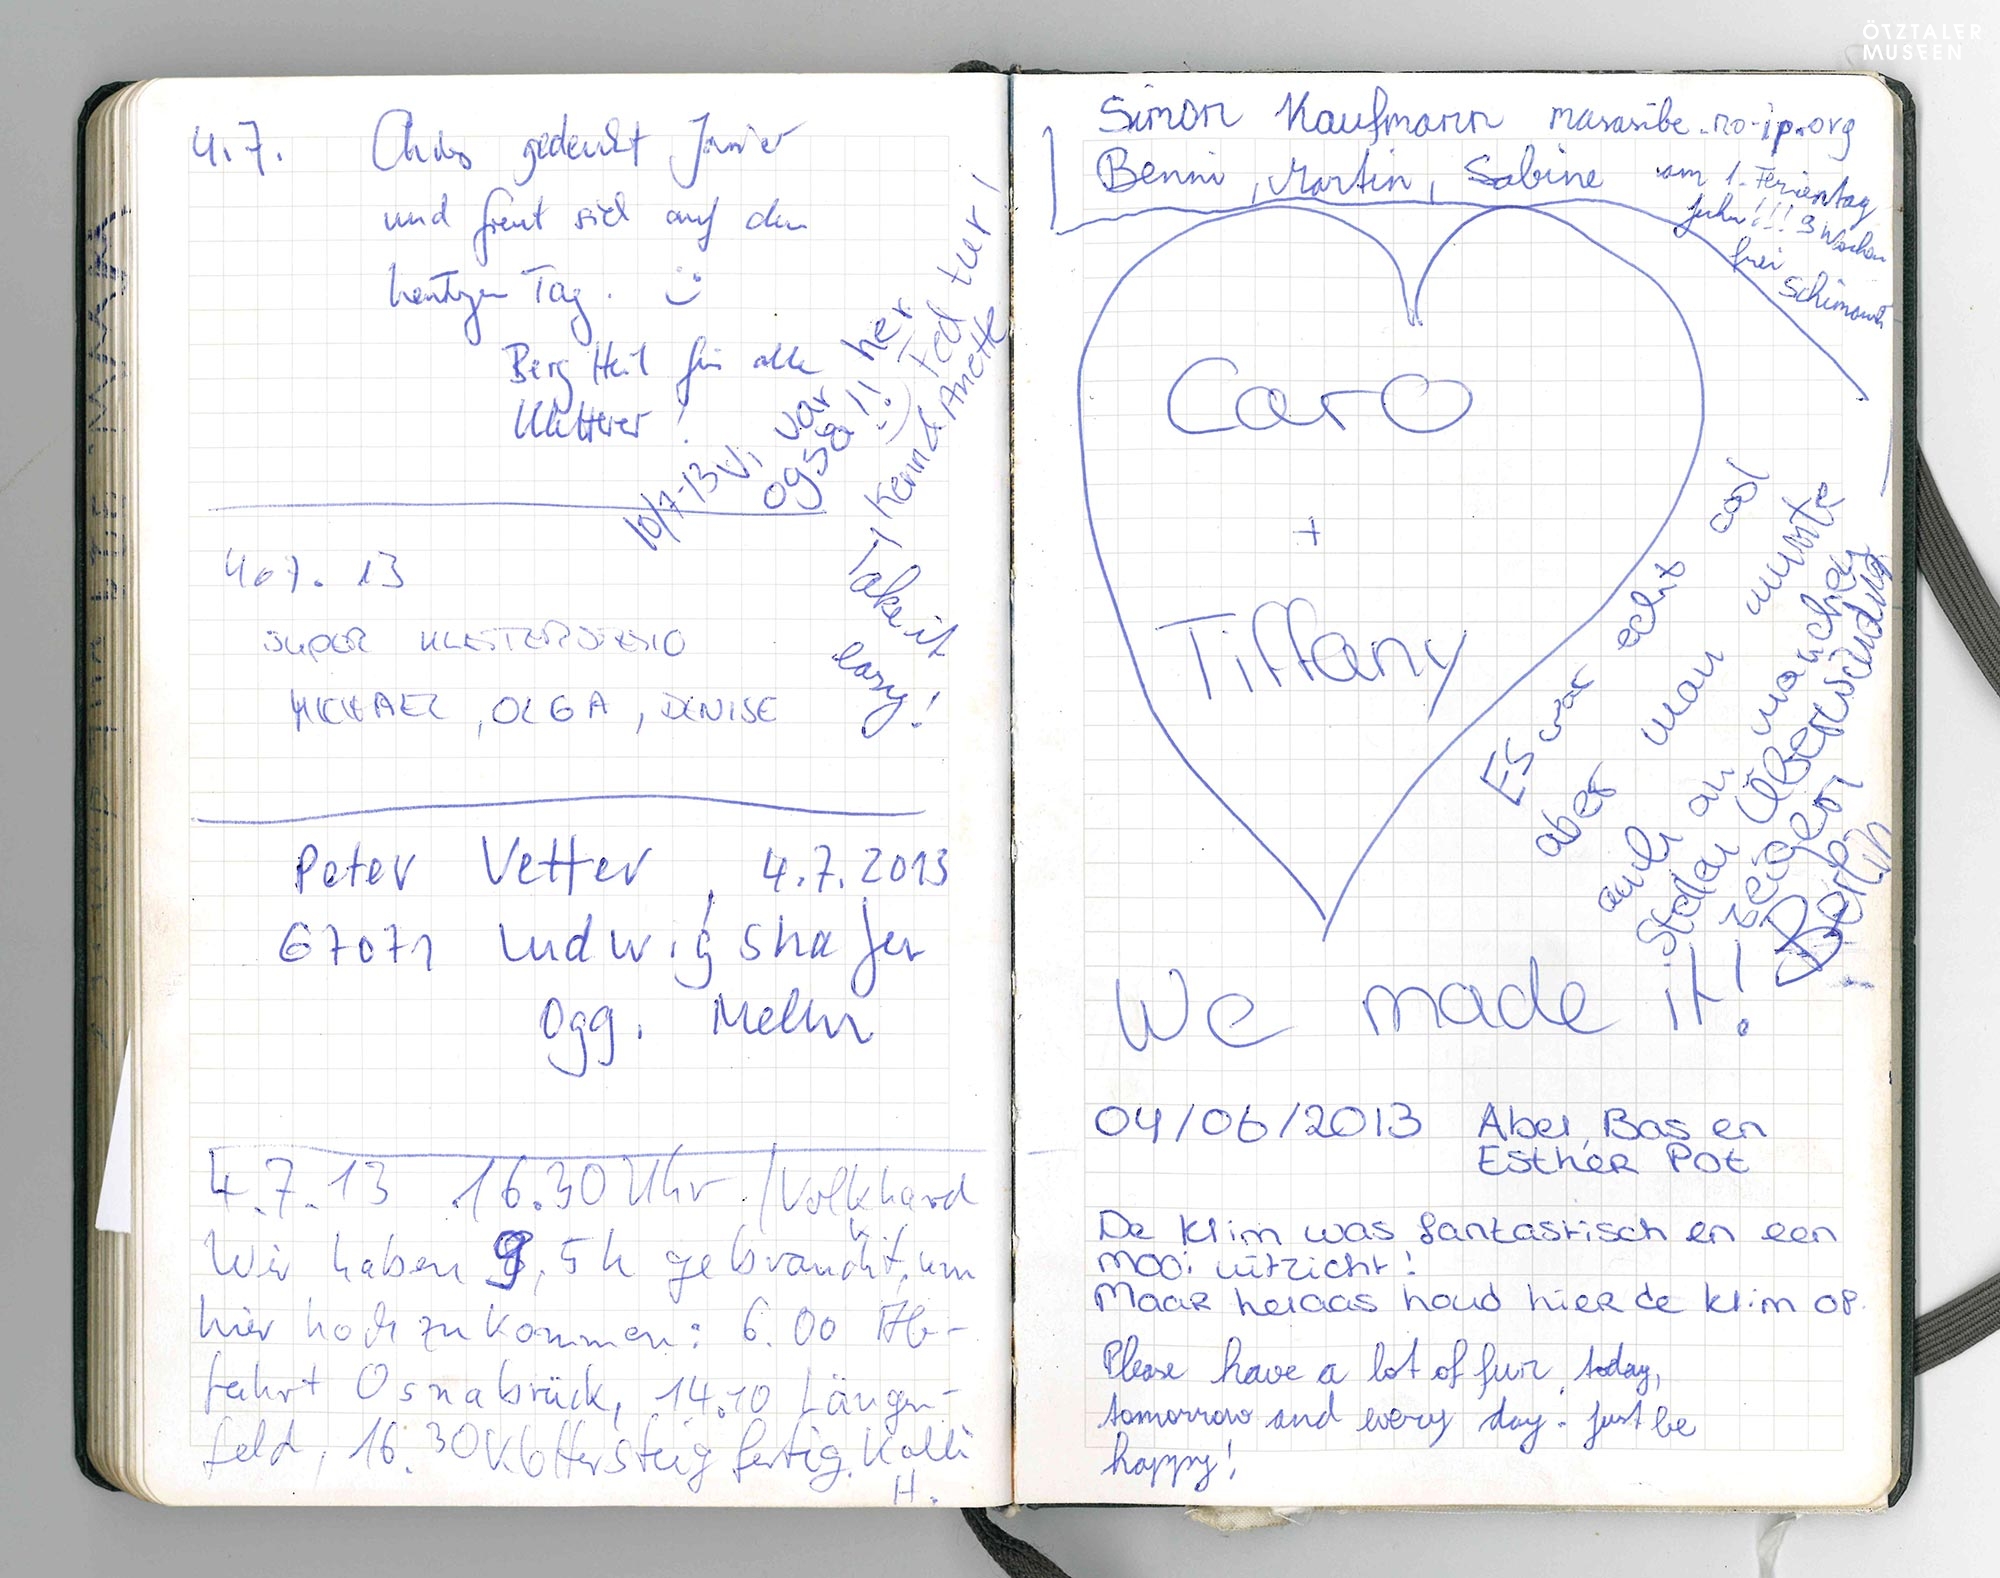 ÖTZTALER
MUSEEN
4.7. gedenkt
und freut sich auf den
heutigen Tag.
Berg Heil für alle
Kletterer!
10/7-13 Vi var her
også!!
Fed tur!
Anette
Take it
easy!
4.7.13
SUPER
MICHAEL, OLGA, DENISE
Peter Vetter, 4.7.2013
67071 Ludwigshafen
Ogg.
4.7.13 16.30 Uhr /Volkhard
Wir haben 9,5h gebraucht, um
hier hoch zu kommen: 6.00 Ab-
fahrt Osnabrück, 14.10 Längen-
feld, 16.30 Klettersteig fertig.
H.
Simon Kaufmann marasibe.no-ip.org
Benni, Martin, Sabine am 1. Ferientag
juhu!!! 9 Wochen
frei
Caro
+
Tiffany
Es war echt cool
aber man musste
auch an manchen
Stellen Überwindung
zeigen
Berlin
We made it!
04/06/2013 Abel, Bas en
Esther Pot
De klim was fantastisch en een
mooi uitzicht!
Maar helaas houd hier de klim op.
Please have a lot of fun today,
tomorrow and every day. Just be
happy!